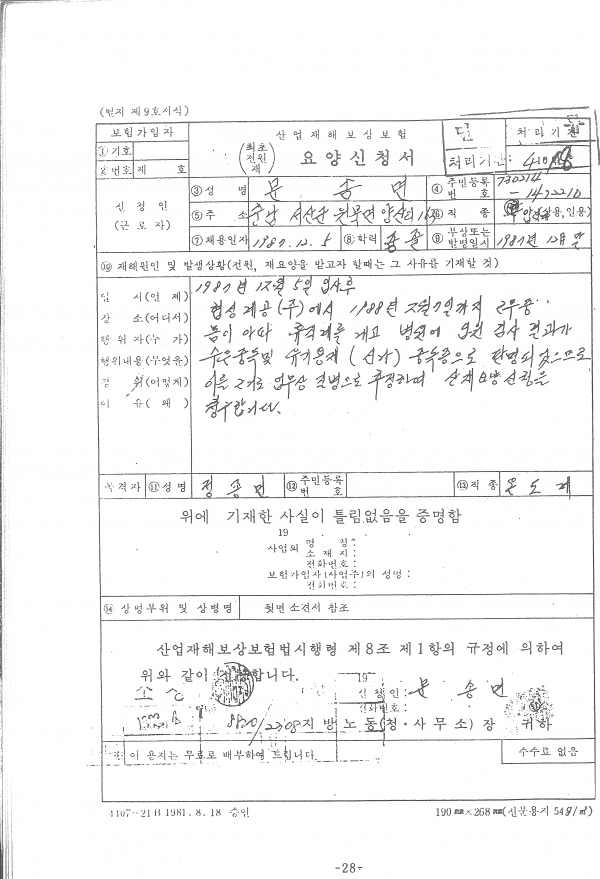 (별지 제9호서식)
보험가입자
산업재해보상보험
처리기간
①기호
(최초 전원 재)
요양신청서
처리기간:
②번호 제 호
신청인
(근로자)
③성명 문송면
④주민등록번호
⑤주소 충남 서산군 원북면 양산리
⑥직종
⑦채용일자 1987. 12. 5
⑧학력 중졸
⑨부상또는발병일시 1987년 12월 말
⑩재해원인 및 발생상황(전원, 재요양을 받고자 할때는 그 사유를 기재할 것)
일 시(언 제)
장 소(어디서)
행위자(누 가)
행위내용(무엇을)
경 위(어떻게)
이 유(왜)
1987년 12월 5일 입사후
협성계공(주)에서 1988년 2월 7일까지 근무중
몸이 아파 휴직계를 내고 병원에 입원 검사 결과가
수은중독및 유기용제(신나) 중독증으로 판명되었으므로
이를 근거로 업무상 질병으로 추정하며 산재요양신청을
청구합니다.
목격자
⑪성명
⑫주민등록번호
⑬직종 온도계
위에 기재한 사실이 틀림없음을 증명함
19 . . .
사업의 명 칭:
소 재 지:
전화번호:
보험가입자(사업주)의 성명:
전화번호:
⑭상병부위 및 상병명
뒷면 소견서 참조
산업재해보상보험법시행령 제8조 제1항의 규정에 의하여
위와 같이 신청합니다.
19
신청인: 문송면
전화번호:
지방노동(청·사무소)장 귀하
※ 이 용지는 무료로 배부하여 드립니다.
수수료 없음
4407-21B 1981. 8. 18 승인
190㎜×268㎜(신문용지 54g/㎡)
-28-